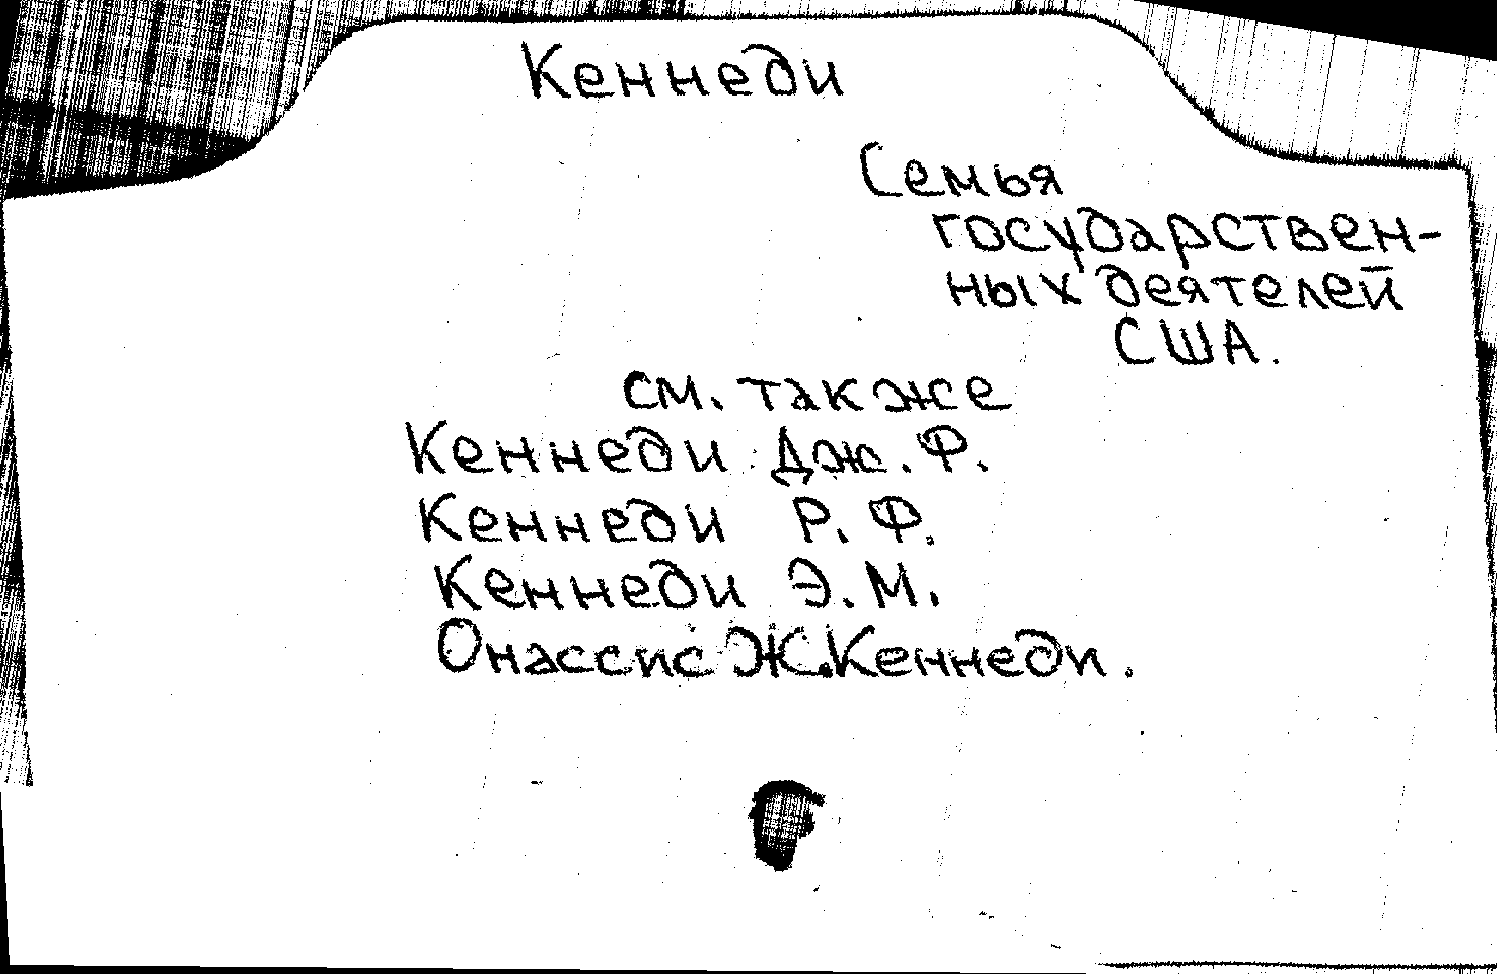 Кеннеди
Семья
государствен-
ных деятелей
США.
см. также
Кеннеди Дж. Ф.
Кеннеди Р. Ф.
Кеннеди Э. М.
Онассис Ж. Кеннеди.